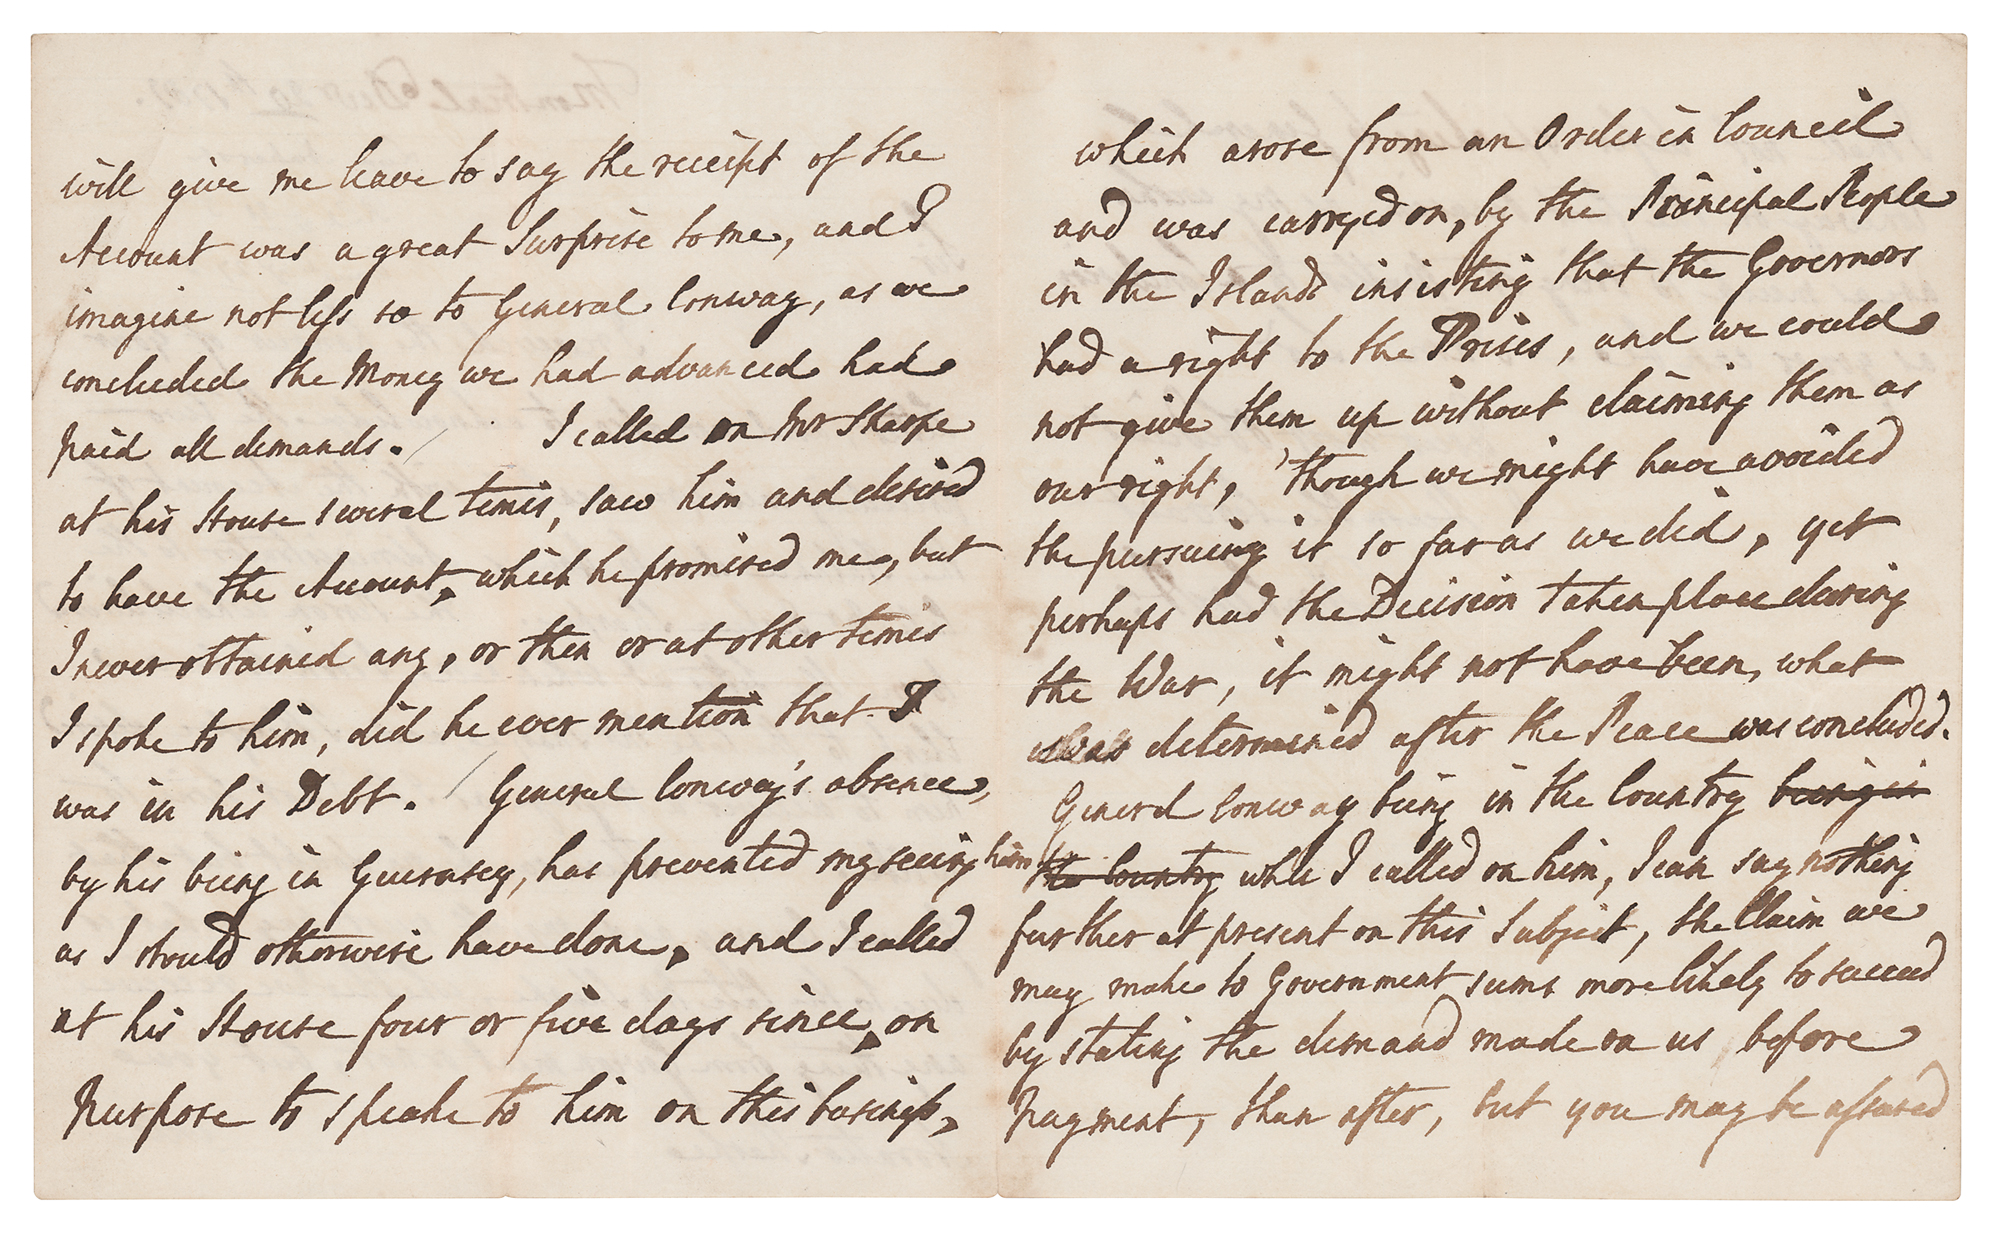 will give me leave to say the receipt of the
Account was a great Surprise to me, and I
imagine not less so to General Conway, as we
concluded the Money we had advanced had
paid all demands. / I called on Mr Sharpe
at his House several times, saw him and desired
to have the Account, which he promised me, but
I never obtained any, or then or at other times
I spoke to him, did he ever mention that I
was in his Debt. / General Conway's absence,
by his being in Guernsey, has prevented my seeing him
as I should otherwise have done, and I called
at his House four or five days since, on
purpose to speake to him on this business,
which arose from an Order in Council
and was carryed on, by the Principal People
in the Islands insisting that the Governors
had a right to the Prises, and we could
not give them up without claiming them as
our right, 'though we might have avoided
the pursuing it so far as we did, yet
perhaps had the Decision taken place during
the War, it might not have been, what
was determined after the Peace was concluded.
General Conway being in the Country being in
the Country when I called on him, I can say nothing
further at present on this Subject, the Claim we
may make to Government seems more likely to succeed
by stating the demand made on us before
Payment, than after, but you may be assured